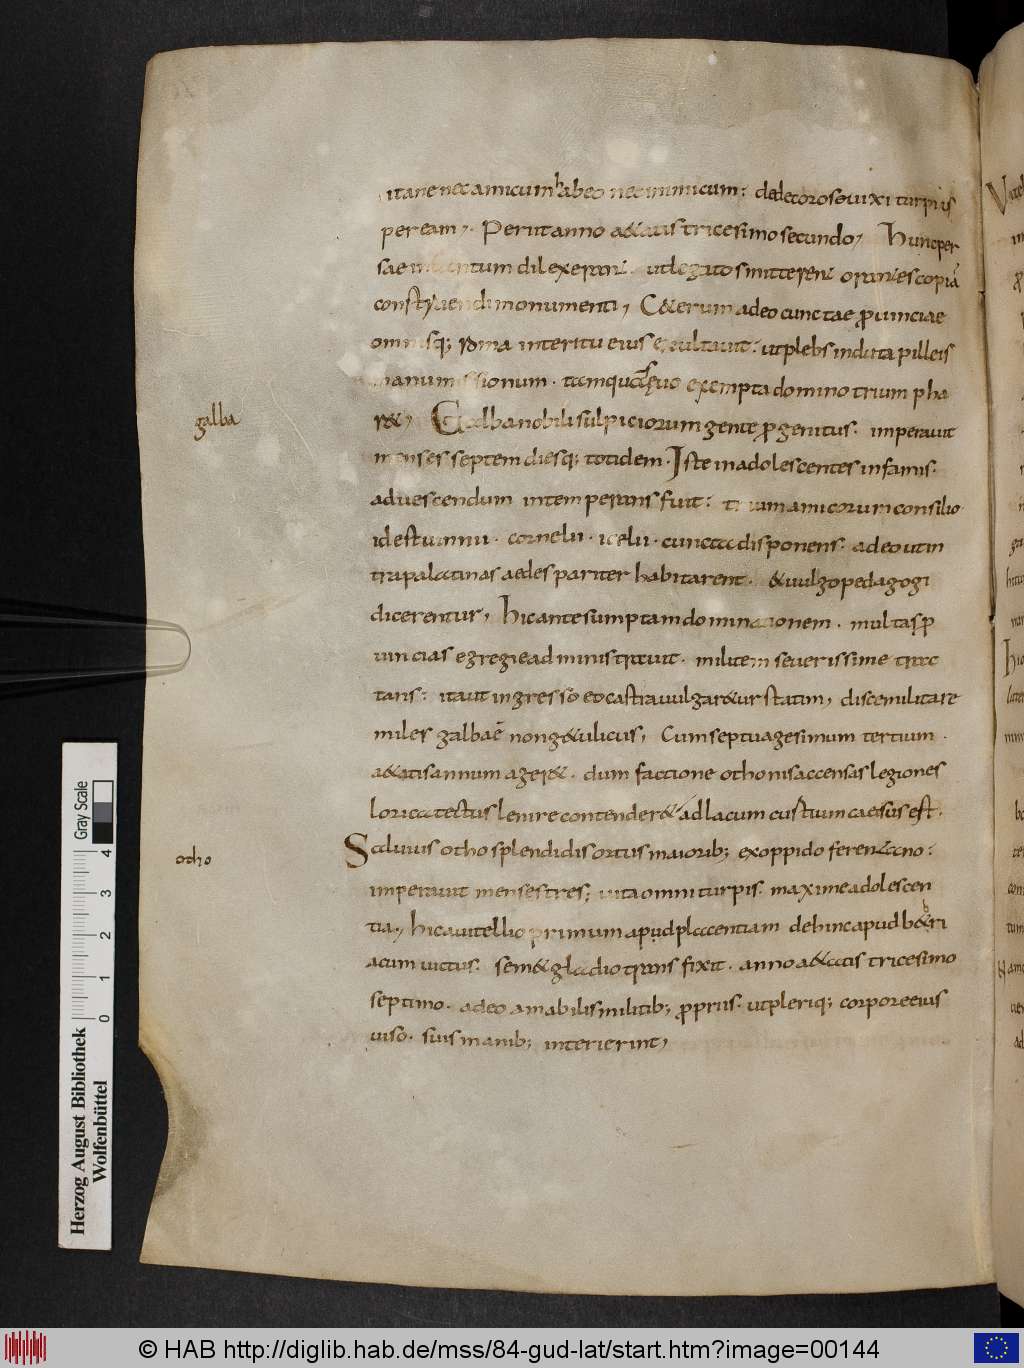 itane nec amicum habeo nec inimicum: dedecorose uixi turpius
peream,. Periit anno &atis tricesimo secundo, Hunc per
sae in tantum dilexerant. ut legatos mitterent orantes copiā
construendi monumenti, C&erum adeo cunctae prouinciae
omnisq; roma interitu eius exultauit: ut plebs induta pilleis
manumissionum. tamquā seuo exempta domino triumpha
r&, Galba nobili sulpiciorum gente progenitus. imperauit
menses septem diesq; totidem. Iste in adolescentes infamis.
ad uescendum intemperans fuit: trium amicorum consilio
id est uinnii. cornelii. icelii. cuncta disponens. adeo ut in
tra palatinas aedes pariter habitarent. & uulgo pedagogi
dicerentur, Hic ante sumptam dominationem. multas pro
uincias egregie administrauit. militem seuerissime trac
tans: ita ut ingresso eo castra uulgar&ur statim, disce militare
miles galba ē non g&ulicus, Cum septuagesimum tertium.
a&atis annum ager&. dum factione othonis accensas legiones
lorica tectus lenire contender& ad lacum curtium caesus est.
Saluius otho splendidis ortus maiorib; ex oppido ferentano:
imperauit menses tres; uita omni turpis. maxime adolescen
tia, hic a uitellio primum apud placentiam dehinc apud b&ri
acum uictus. sem& gladio trans fixit. anno a&atis tricesimo
septimo. adeo amabilis militib; propriis. ut pleriq; corpore eius
uiso. suis manib; interierint,
galba
otho
Gray Scale
0 1 2 3 4
Herzog August Bibliothek
Wolfenbüttel
© HAB http://diglib.hab.de/mss/84-gud-lat/start.htm?image=00144